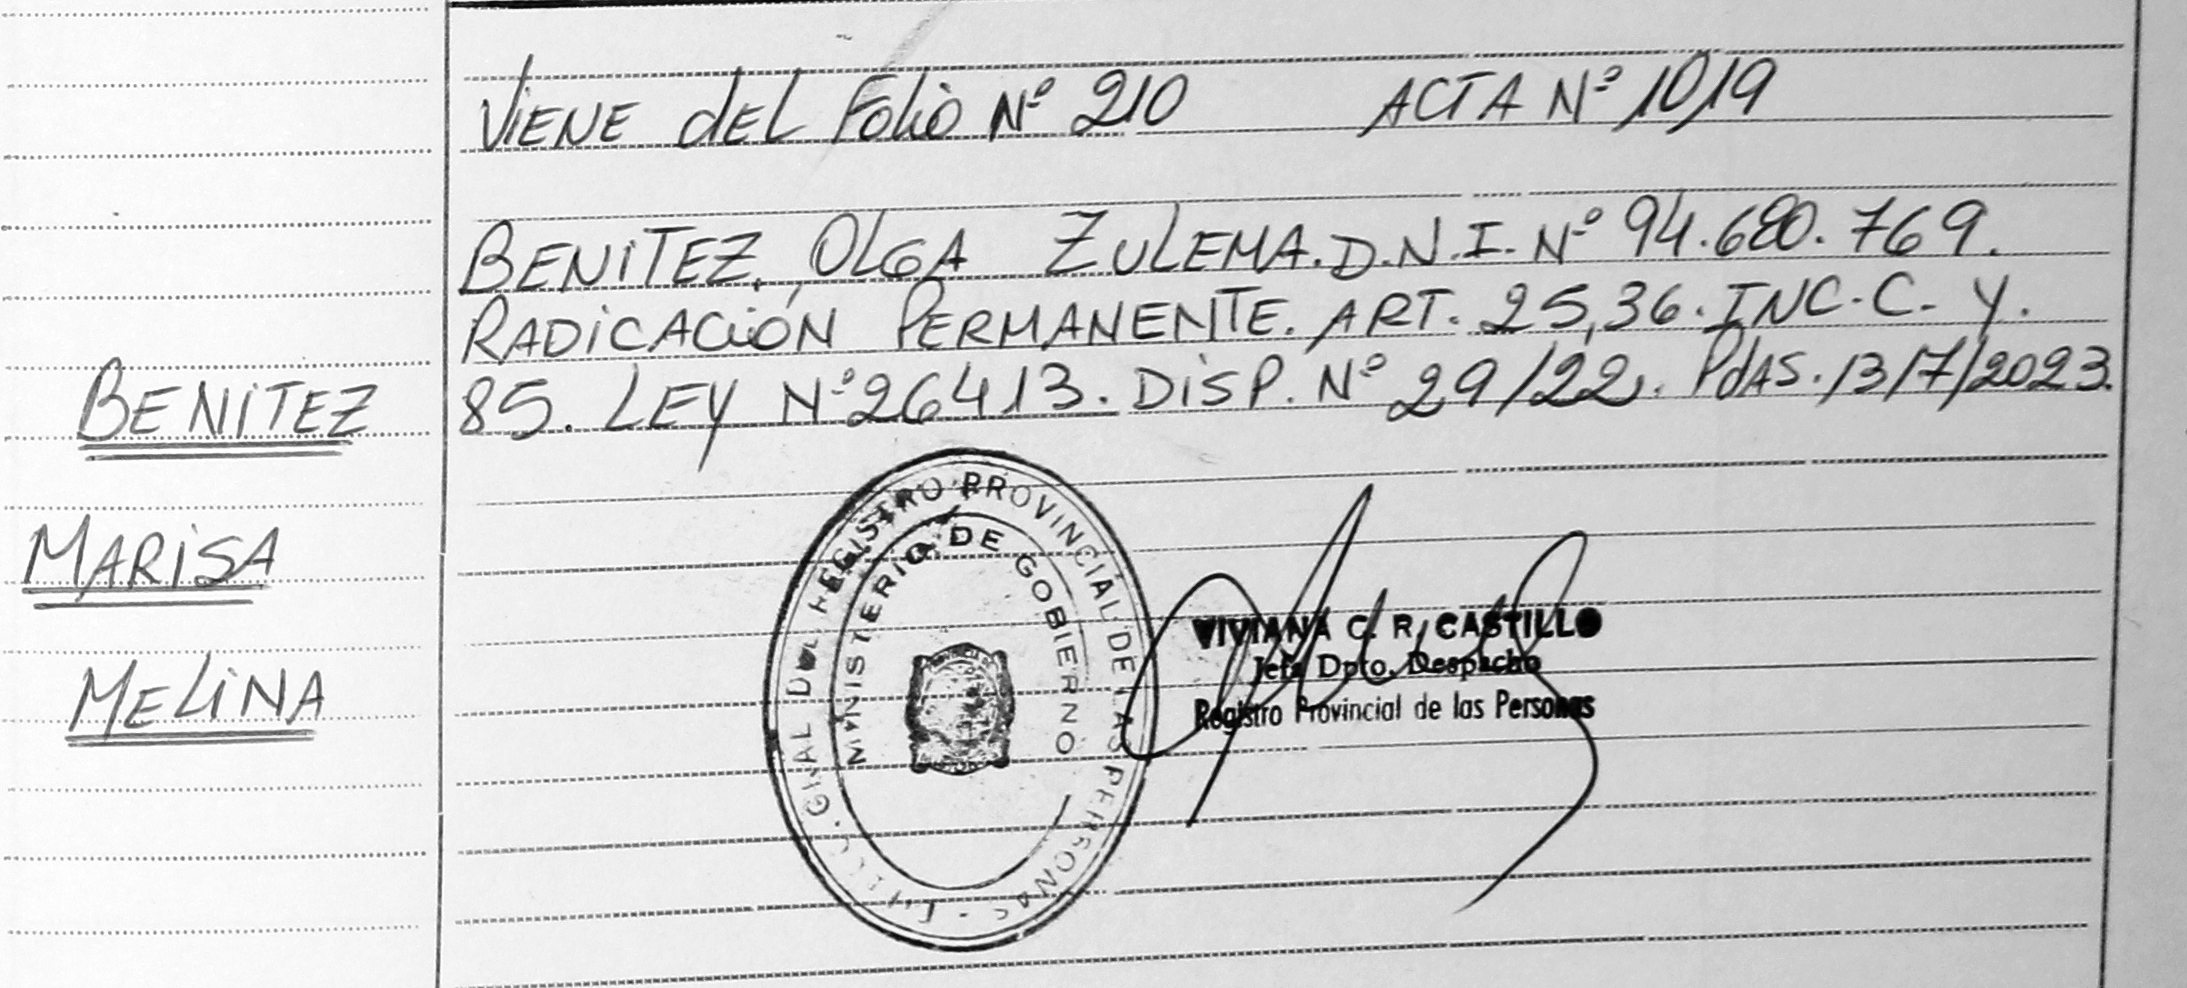 Viene del Folio N° 210 ACTA N° 1019
BENITEZ, OLGA ZULEMA. D.N.I. N° 94.680.769.
RADICACIÓN PERMANENTE. ART. 25,36. INC. C. Y.
85. LEY N° 26413. DISP. N° 29/22. PdAS. 13/7/2023.
BENITEZ
MARISA
MELINA
REGISTRO PROVINCIAL DE LAS PERSONAS
MINISTERIO DE GOBIERNO
VIVIANA C. R. CASTILLO
Jefa Dpto. Despacho
Registro Provincial de las Personas